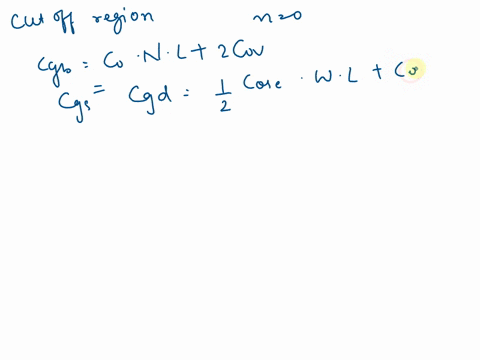 Cut off region n=0
Cgb = Co · N · L + 2 Cov
Cgs = Cgd = 1/2 Coxe · W · L + Cov